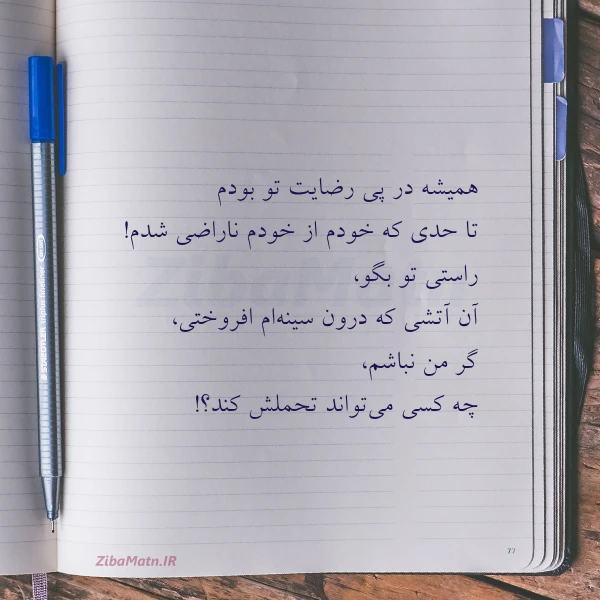 همیشه در پی رضایت تو بودم
تا حدی که خودم از خودم ناراضی شدم!
راستی تو بگو،
آن آتشی که درون سینه‌ام افروختی،
گر من نباشم،
چه کسی می‌تواند تحملش کند؟!
ZibaMatn.IR
77